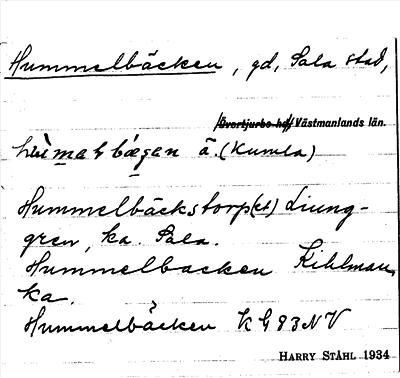 Hummelbäcken, gd, Sala stad,
Övertjurbo hd, Västmanlands län.
ä. (Kumla)
Hummelbäckstorp(et) Ljung-
gren, ka. Sala.
Hummelbacken Kihlman,
ka.
Hummelbäcken KG 83 NV
HARRY STÅHL 1934